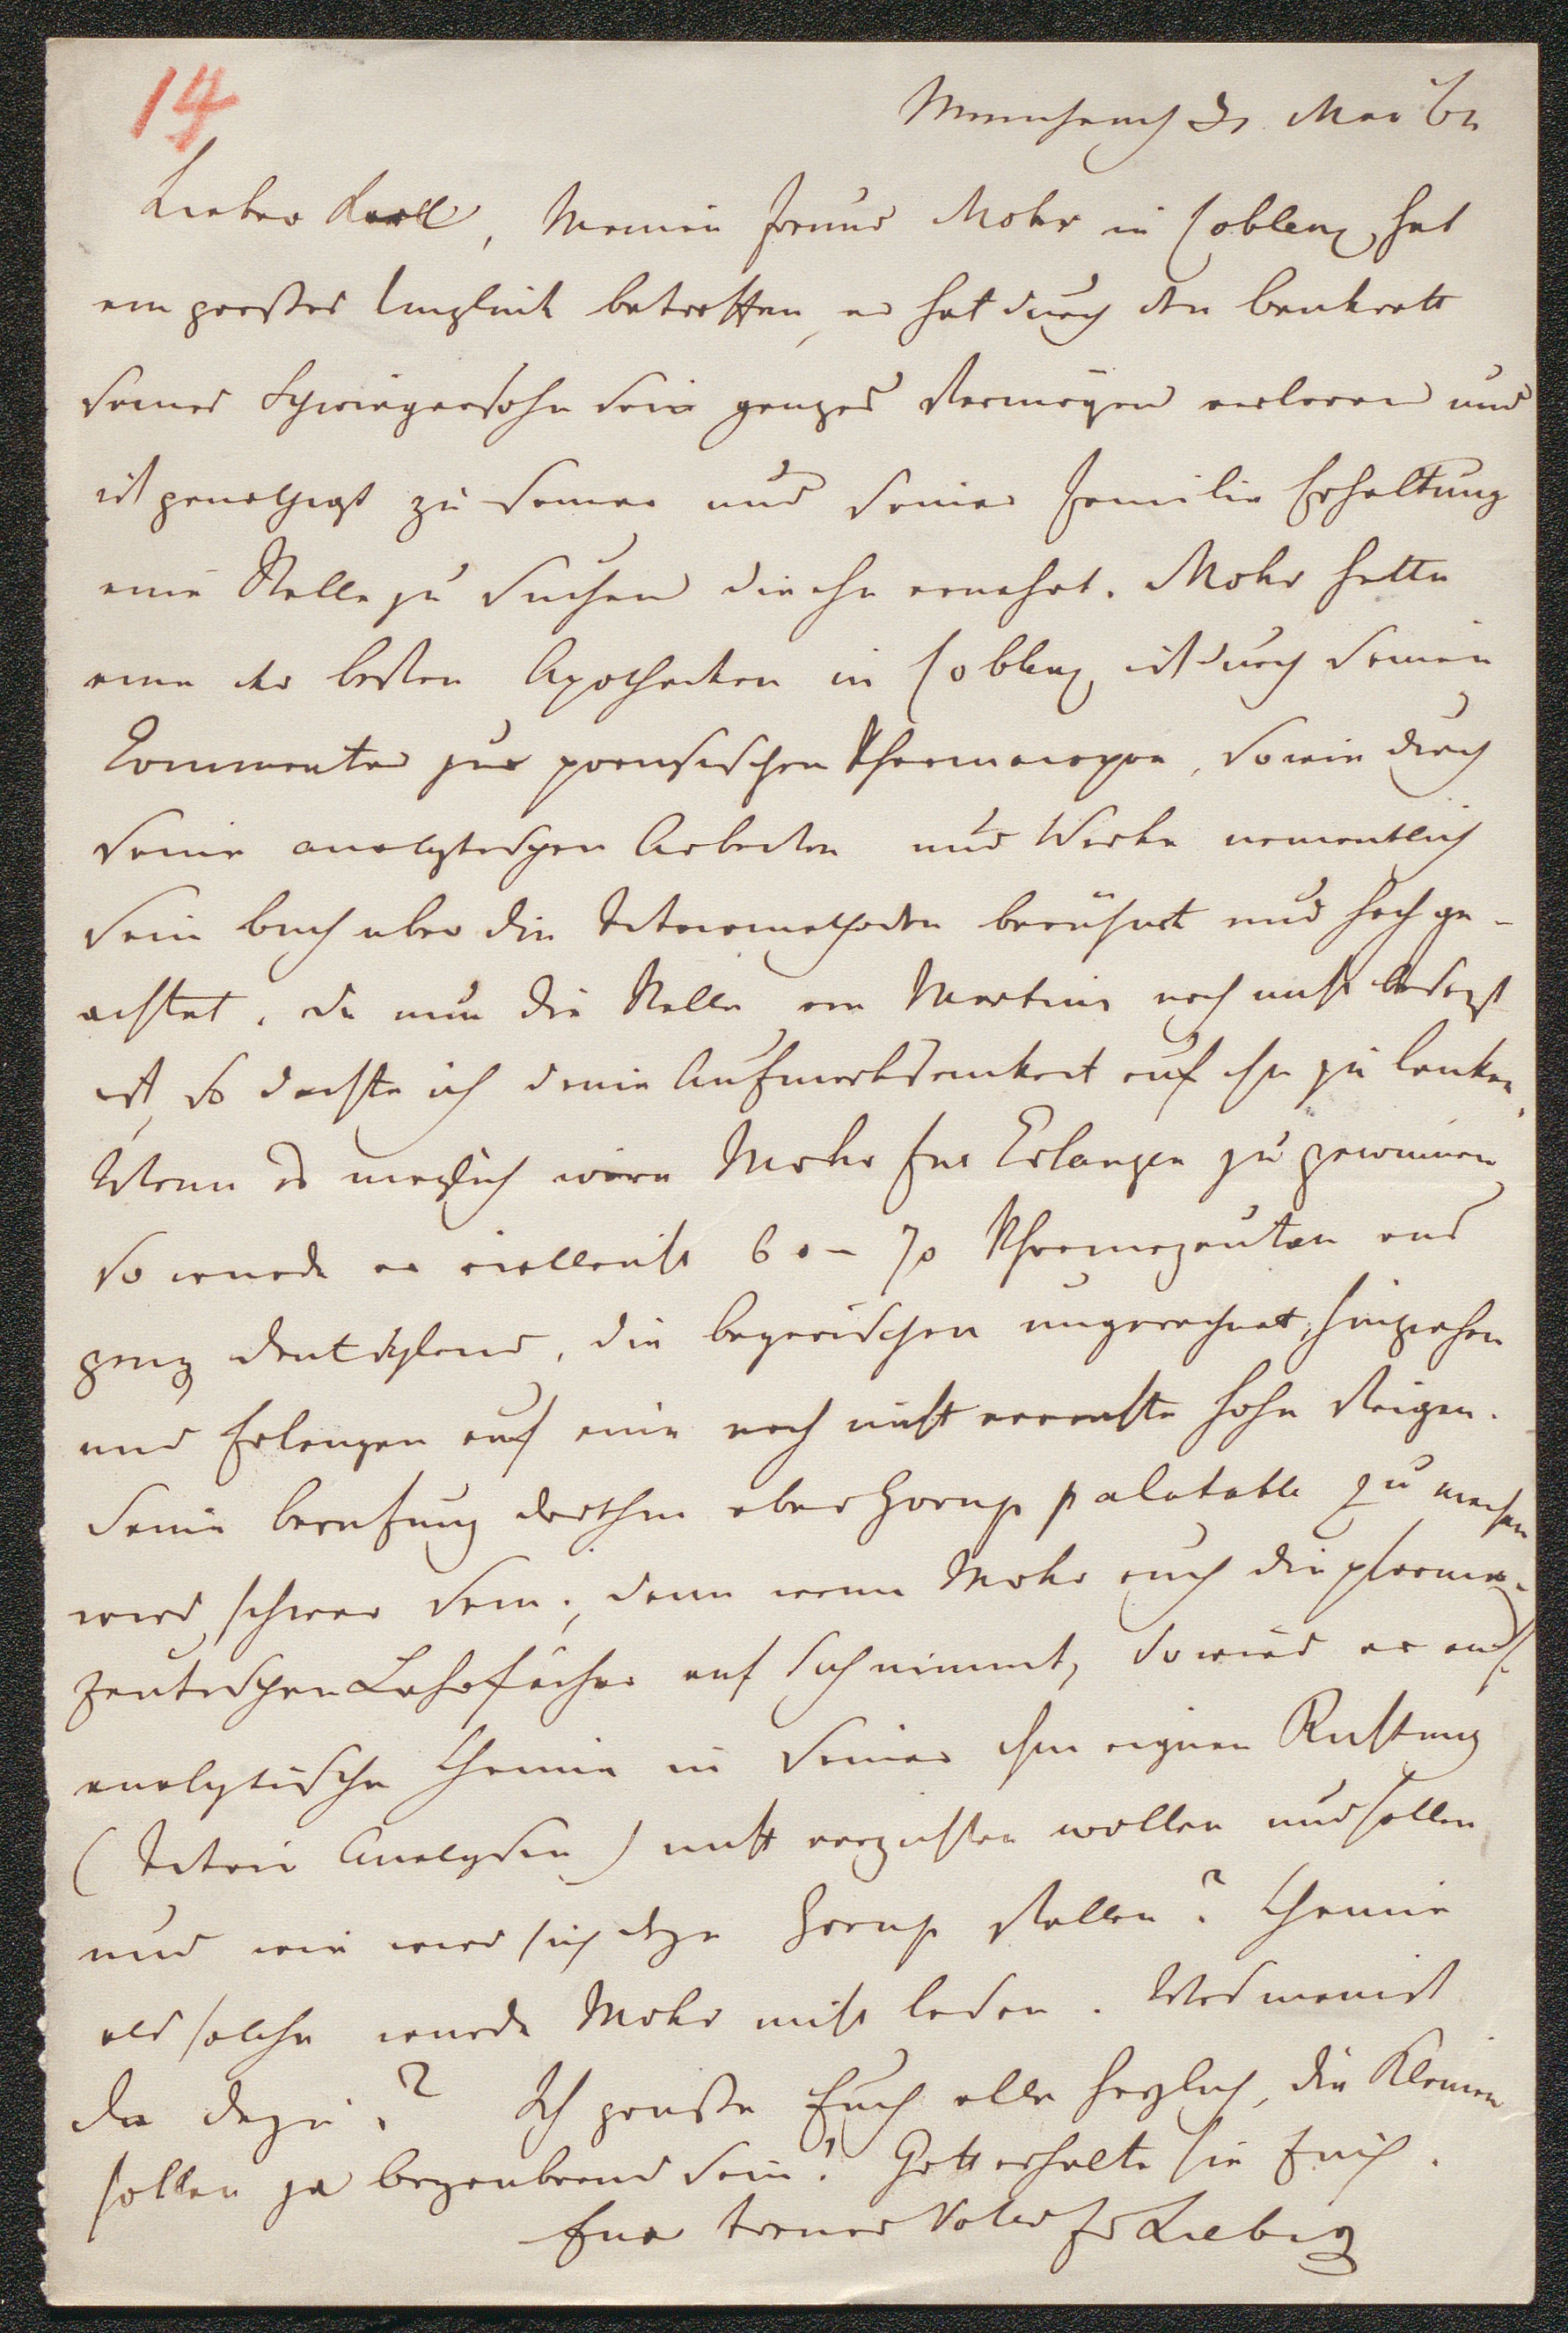 14
München 31 Mai 62
Lieber Karll, Meinen Freund Mohr in Coblenz hat
ein großes Unglück betroffen, er hat durch den Bankrott
seines Schwiegersohn sein ganzes Vermögen verloren und
ist genothigt zu seiner und seiner Familie Erhaltung
eine Stelle zu suchen die ihn ernahrt. Mohr hatte
eine der besten Apotheken in Coblenz, ist durch seinen
Commentar zur preusischen Pharmacopoe, sowie durch
seine analytischen Arbeiten und Werke namentlich
sein Buch uber die Titrirmethoden berühmt und hochge-
achtet. Da nun die Stelle von Martius noch nicht besezt
ist, so dachte ich deine Aufmerksamkeit auf ihn zu lenken.
Wenn es moglich wäre Mohr fur Erlangen zu gewinnen
so wurde er vielleicht 60 - 70 Pharmazeuten aus
ganz Deutschland, die bayerischen ungerechnet, hinziehen
und Erlangen auf eine noch nicht erreichte Hohe steigen.
Seine Berufung dorthin aber Gorup palatable zu machen
wird schwer sein; denn wenn Mohr auch die pharma-
zeutischen Lehrfächer auf sich nimmt, so wird er auf
analytische Chemie in seiner ihm eignen Richtung
(Titrir Analysen) nicht verzichten wollen und sollen
und wie wird sich dazu Gorup stellen? Chemie
als solche wurde Mohr nicht lesen. Was meinst
du dazu? Ich grüße Euch alle herzlich, die Kleinen
sollen ja bezaubernd sein! Gott erhalte sie Euch.
Euer treuer Vater Jv Liebig